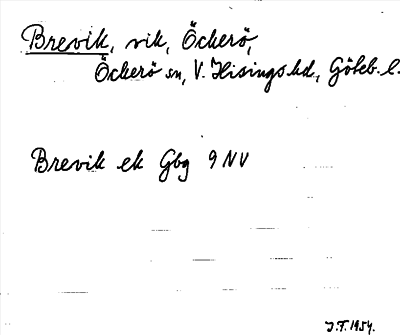 Brevik, vik, Öckerö,
Öckerö sn, V. Hisings hd, Göteb. l.
Brevik ek Gbg 9 NV
J.T. 1954.